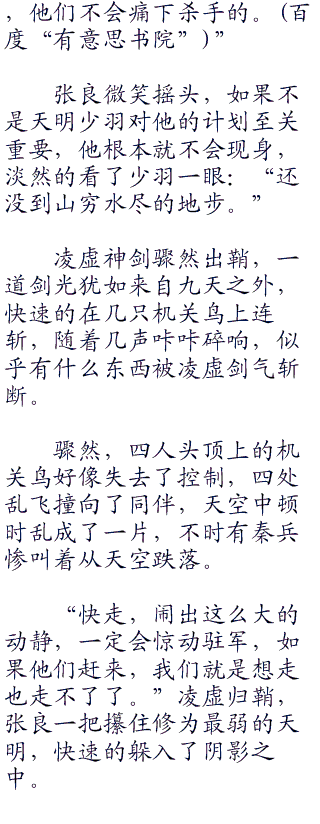 ，他们不会痛下杀手的。(百
度“有意思书院”)”
张良微笑摇头，如果不
是天明少羽对他的计划至关
重要，他根本就不会现身，
淡然的看了少羽一眼：“还
没到山穷水尽的地步。”
凌虚神剑骤然出鞘，一
道剑光犹如来自九天之外，
快速的在几只机关鸟上连
斩，随着几声咔咔碎响，似
乎有什么东西被凌虚剑气斩
断。
骤然，四人头顶上的机
关鸟好像失去了控制，四处
乱飞撞向了同伴，天空中顿
时乱成了一片，不时有秦兵
惨叫着从天空跌落。
“快走，闹出这么大的
动静，一定会惊动驻军，如
果他们赶来，我们就是想走
也走不了了。”凌虚归鞘，
张良一把攥住修为最弱的天
明，快速的躲入了阴影之
中。